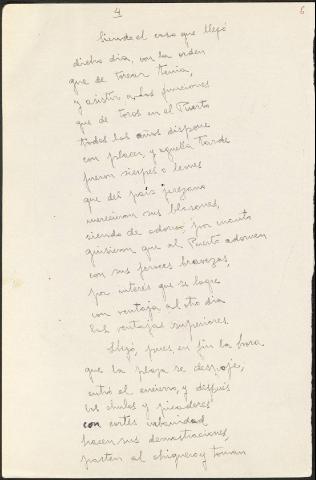 4
6
Siendo el caso que llegó
dicho día, con la orden
que de torear tenía,
y asistir a las funciones
que de toros en el Puerto
todos los años dispone
con placer, y aquella tarde
fueron sierpes o leones
que del país jerezano
merecieron sus blasones,
siendo de adorno, por cuanto
quisieron que al Puerto adornen
con sus feroces bravezas,
por interés que se logre
con ventaja al otro día
las ventajas superiores.
Llegó, pues, en fin la hora
que la plaza se despoje,
entró el encierro, y después
los chulos y picadores
con cortés urbanidad
hacen sus demostraciones,
parten al chiquero y toman